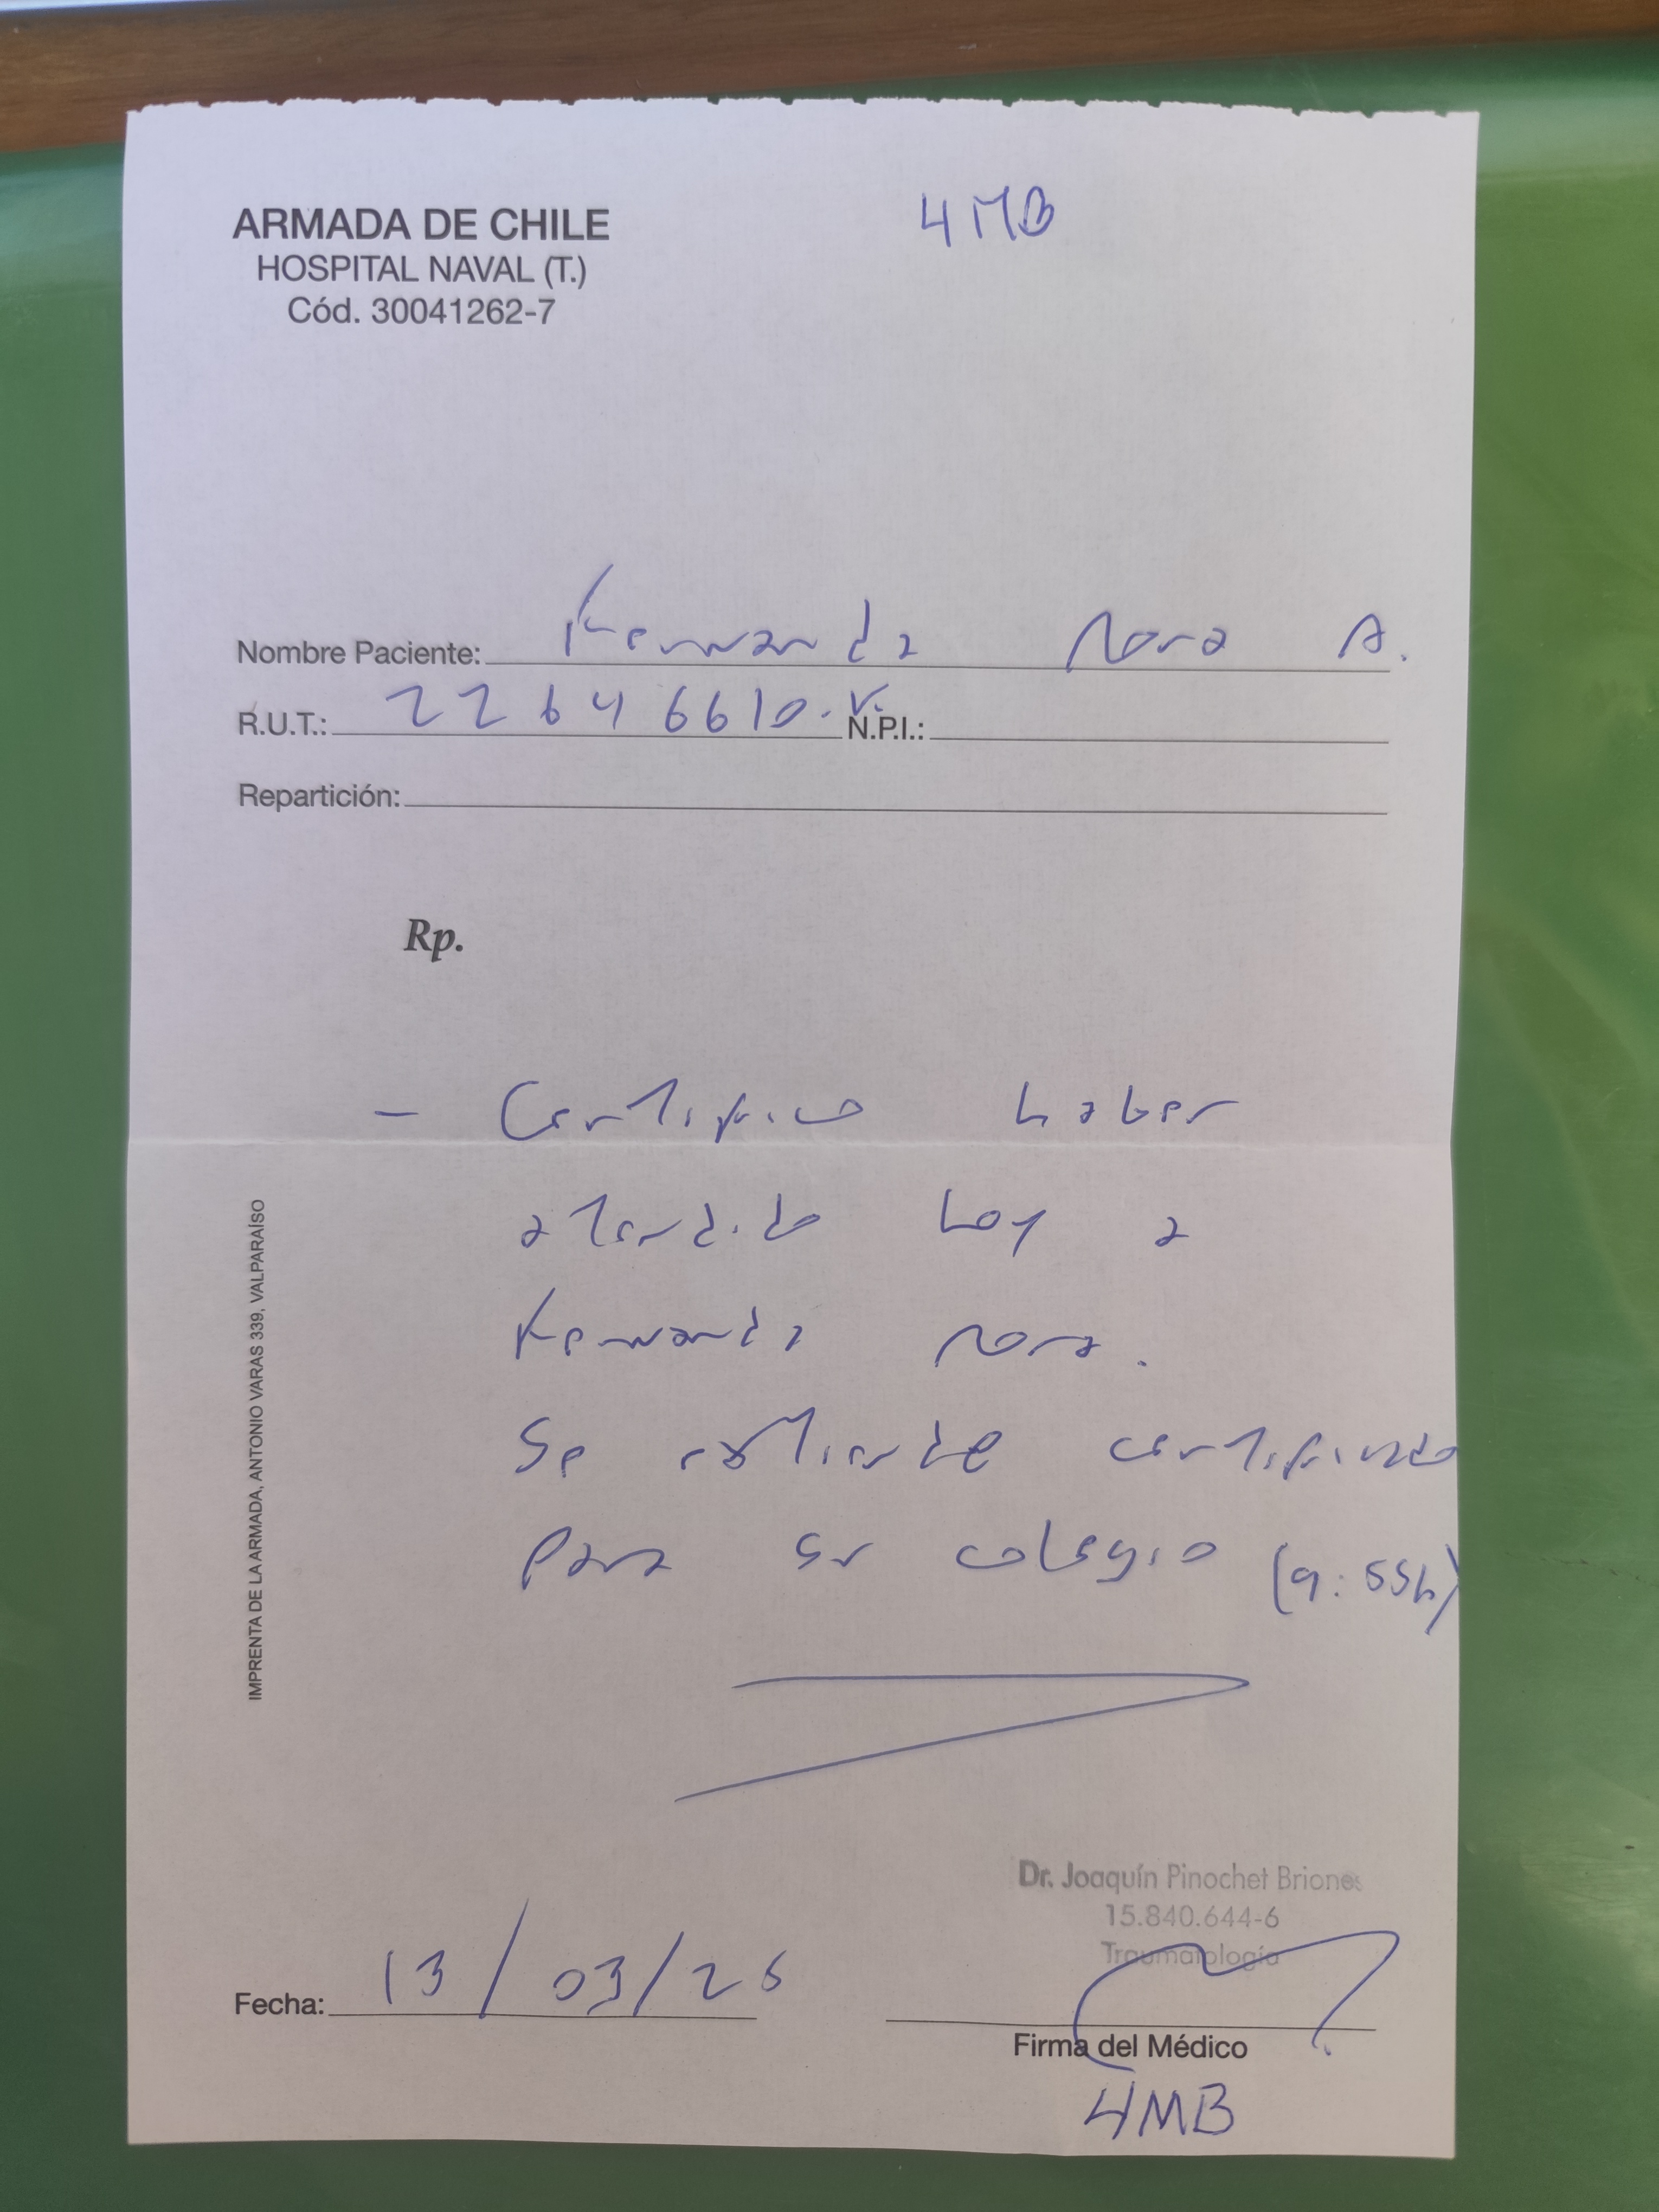 ARMADA DE CHILE
HOSPITAL NAVAL (T.)
Cód. 30041262-7
4MB
Nombre Paciente: Fernanda A.
R.U.T.: 22646610-K N.P.I.:
Repartición:
Rp.
- Certifico haber
atendido hoy a
Fernanda
Se extiende certificado
para su colegio (9:55h)
IMPRENTA DE LA ARMADA, ANTONIO VARAS 339, VALPARAÍSO
Dr. Joaquín Pinochet Briones
15.840.644-6
Traumatología
Fecha: 13/03/26
Firma del Médico
4MB